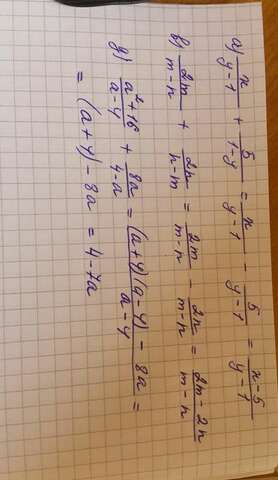 а) x/(y-1) + 5/(1-y) = x/(y-1) - 5/(y-1) = (x-5)/(y-1)
в) 2m/(m-n) + 2n/(n-m) = 2m/(m-n) - 2n/(m-n) = (2m-2n)/(m-n)
д) (a²+16)/(a-4) + 8a/(4-a) = ((a+4)(a-4) - 8a)/(a-4) =
= (a+4) - 8a = 4-7a